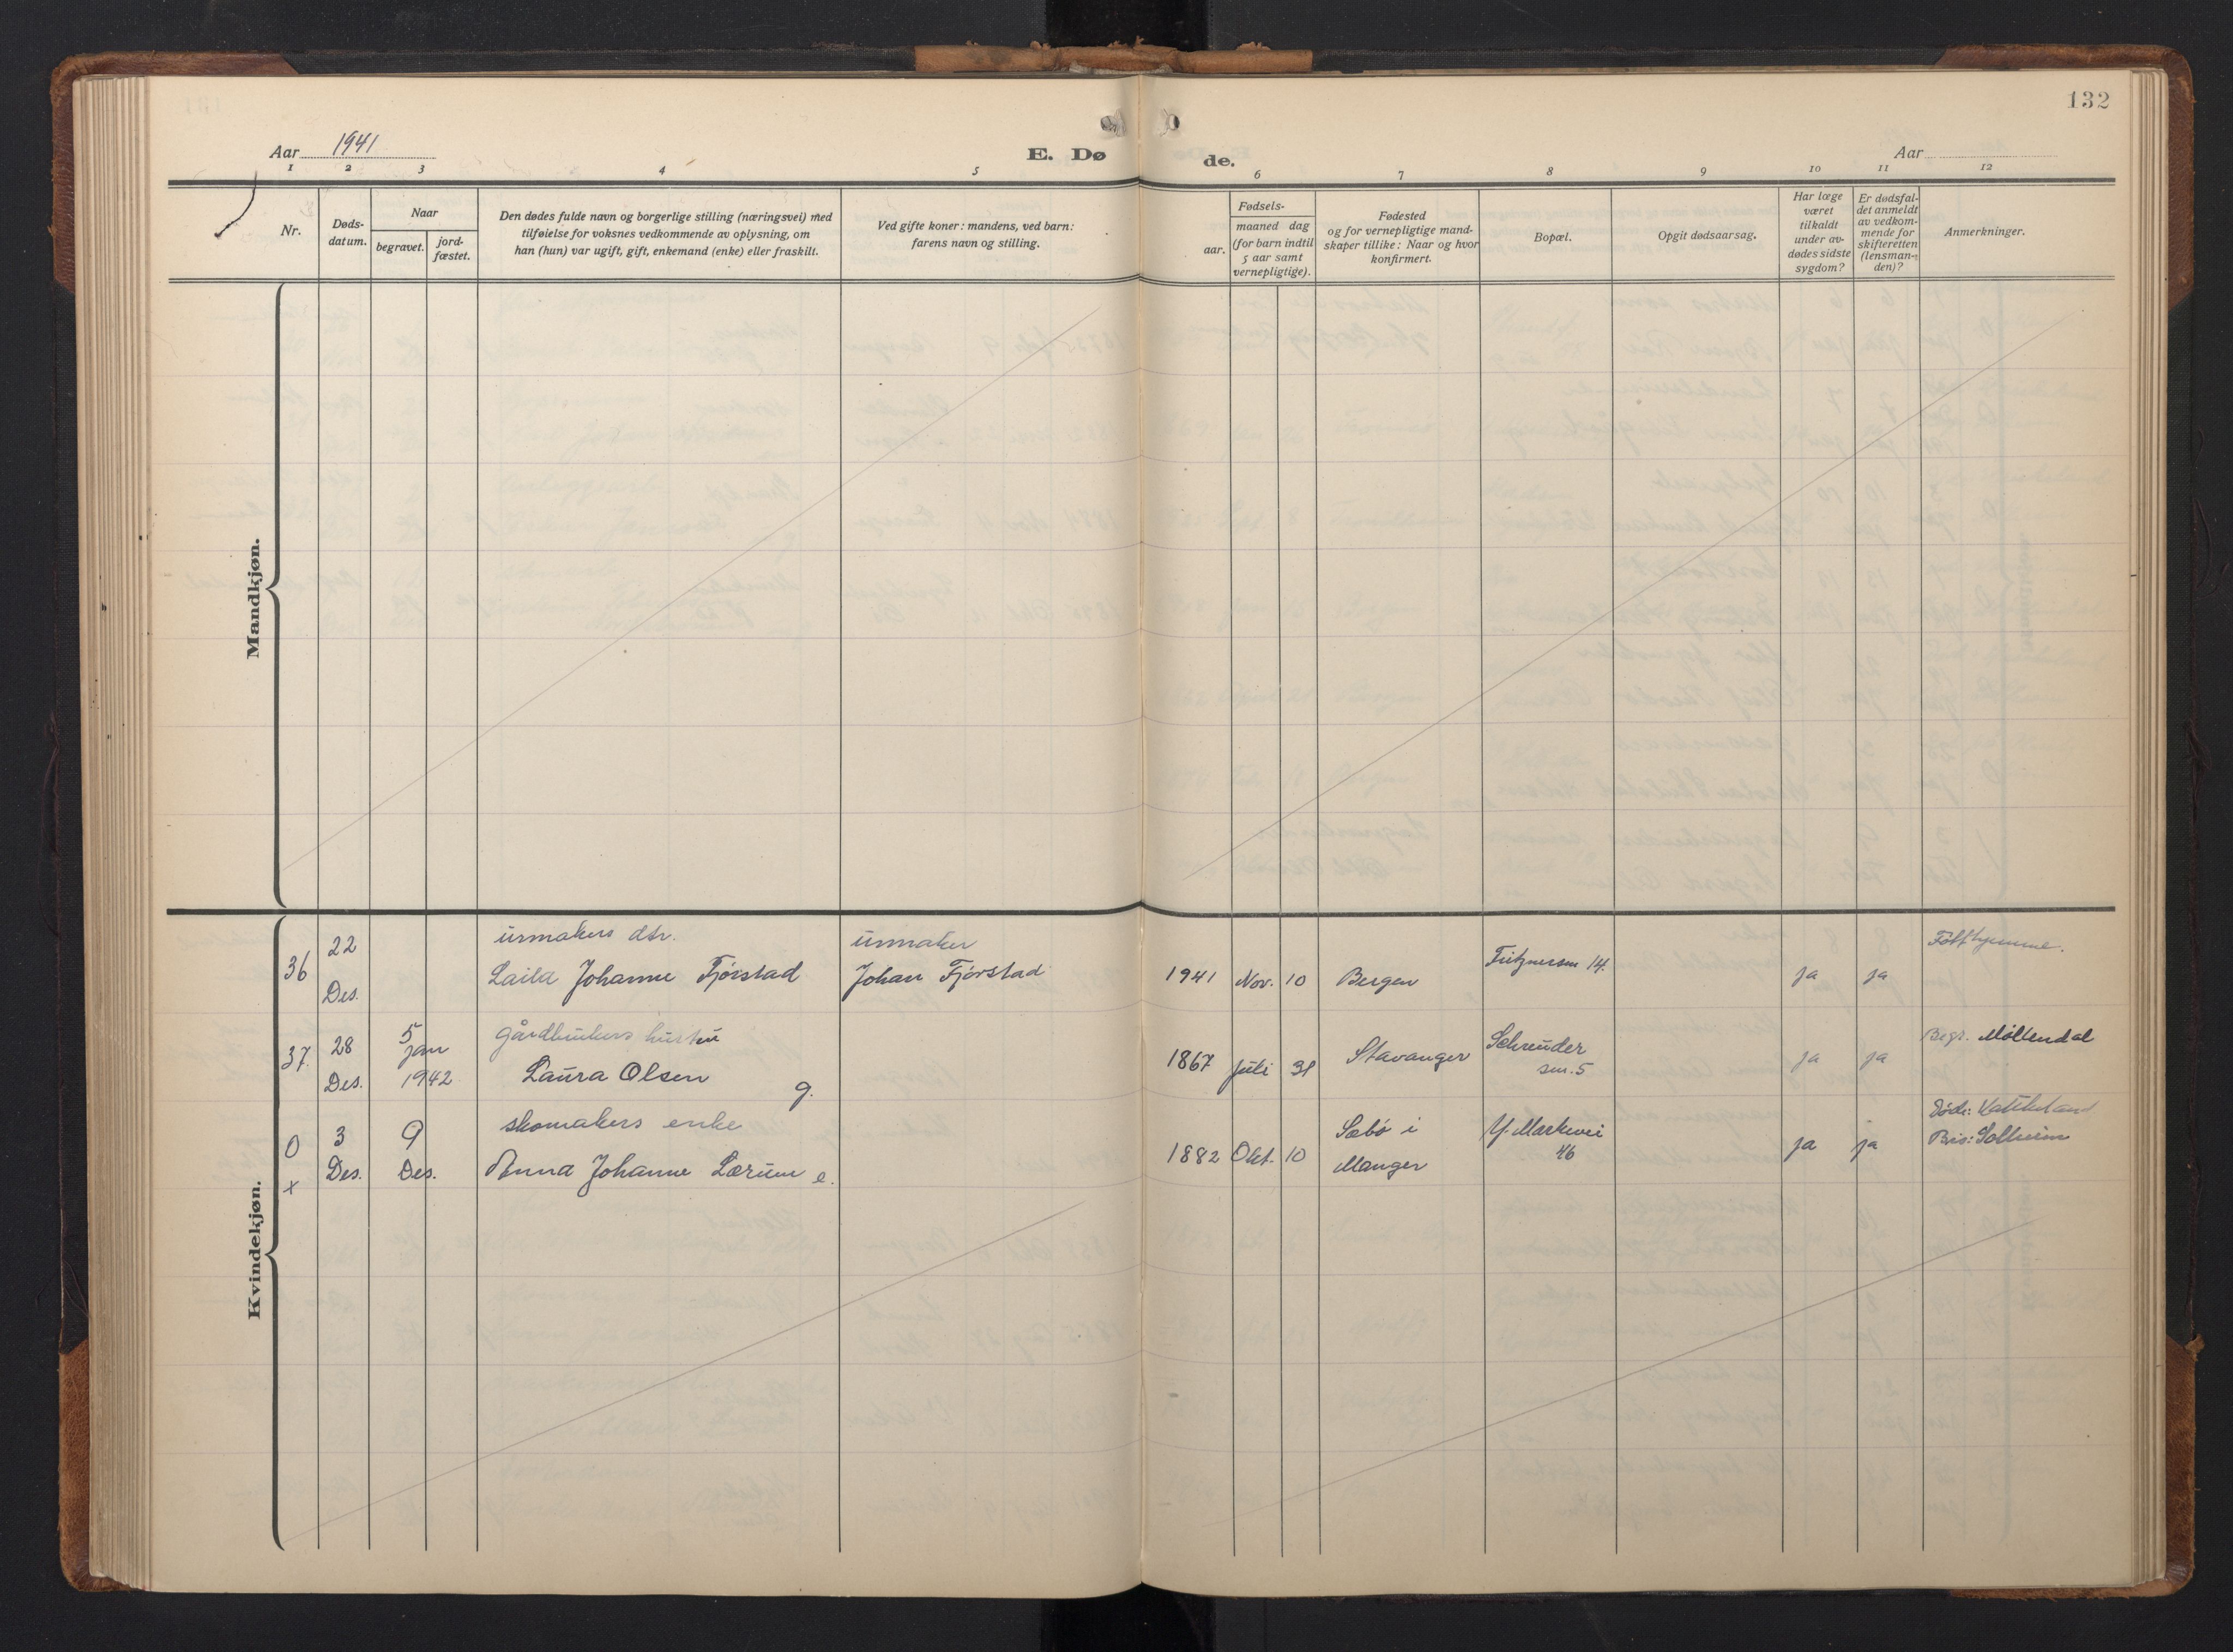 132
Aar 1941
E. Dø de.
Aar
1 2 3 4 5 6 7 8 9 10 11 12
Nr.
Døds-
datum.
Naar
begravet.
jord-
fæstet.
Den dødes fulde navn og borgerlige stilling (næringsvei) med
tilføielse for voksnes vedkommende av oplysning, om
han (hun) var ugift, gift, enkemand (enke) eller fraskilt.
Ved gifte koner: mandens, ved barn:
farens navn og stilling.
Fødsels-
aar.
maaned dag
(for barn indtil
5 aar samt
vernepligtige).
Fødested
og for vernepligtige mand-
skaper tillike: Naar og hvor
konfirmert.
Bopæl.
Opgit dødsaarsag.
Har læge
været
tilkaldt
under av-
dødes sidste
sygdom?
Er dødsfal-
det anmeldt
av vedkom-
mende for
skifteretten
(lensman-
den)?
Anmerkninger.
Mandkjøn.
Kvindekjøn.
36
22
Des.
urmakers dtr.
Laila Johanne Fjørstad
urmaker
Johan Fjørstad
1941 Nov. 10 Bergen
Fritznersm 14.
ja ja
37.
28
Des.
5
jan
1942
gårdbrukers hustru
Laura Olsen g.
1867 Juli 31 Stavanger
Schreuder
sm. 5
ja ja
Begr. Møllendal
0
x
3
Des.
9
Des.
skomakers enke
Anna Johanne Lærum e.
1882 Okt. 10
Sæbø i
Manger
Y. Markevei
46
ja ja
Bis: Solheim